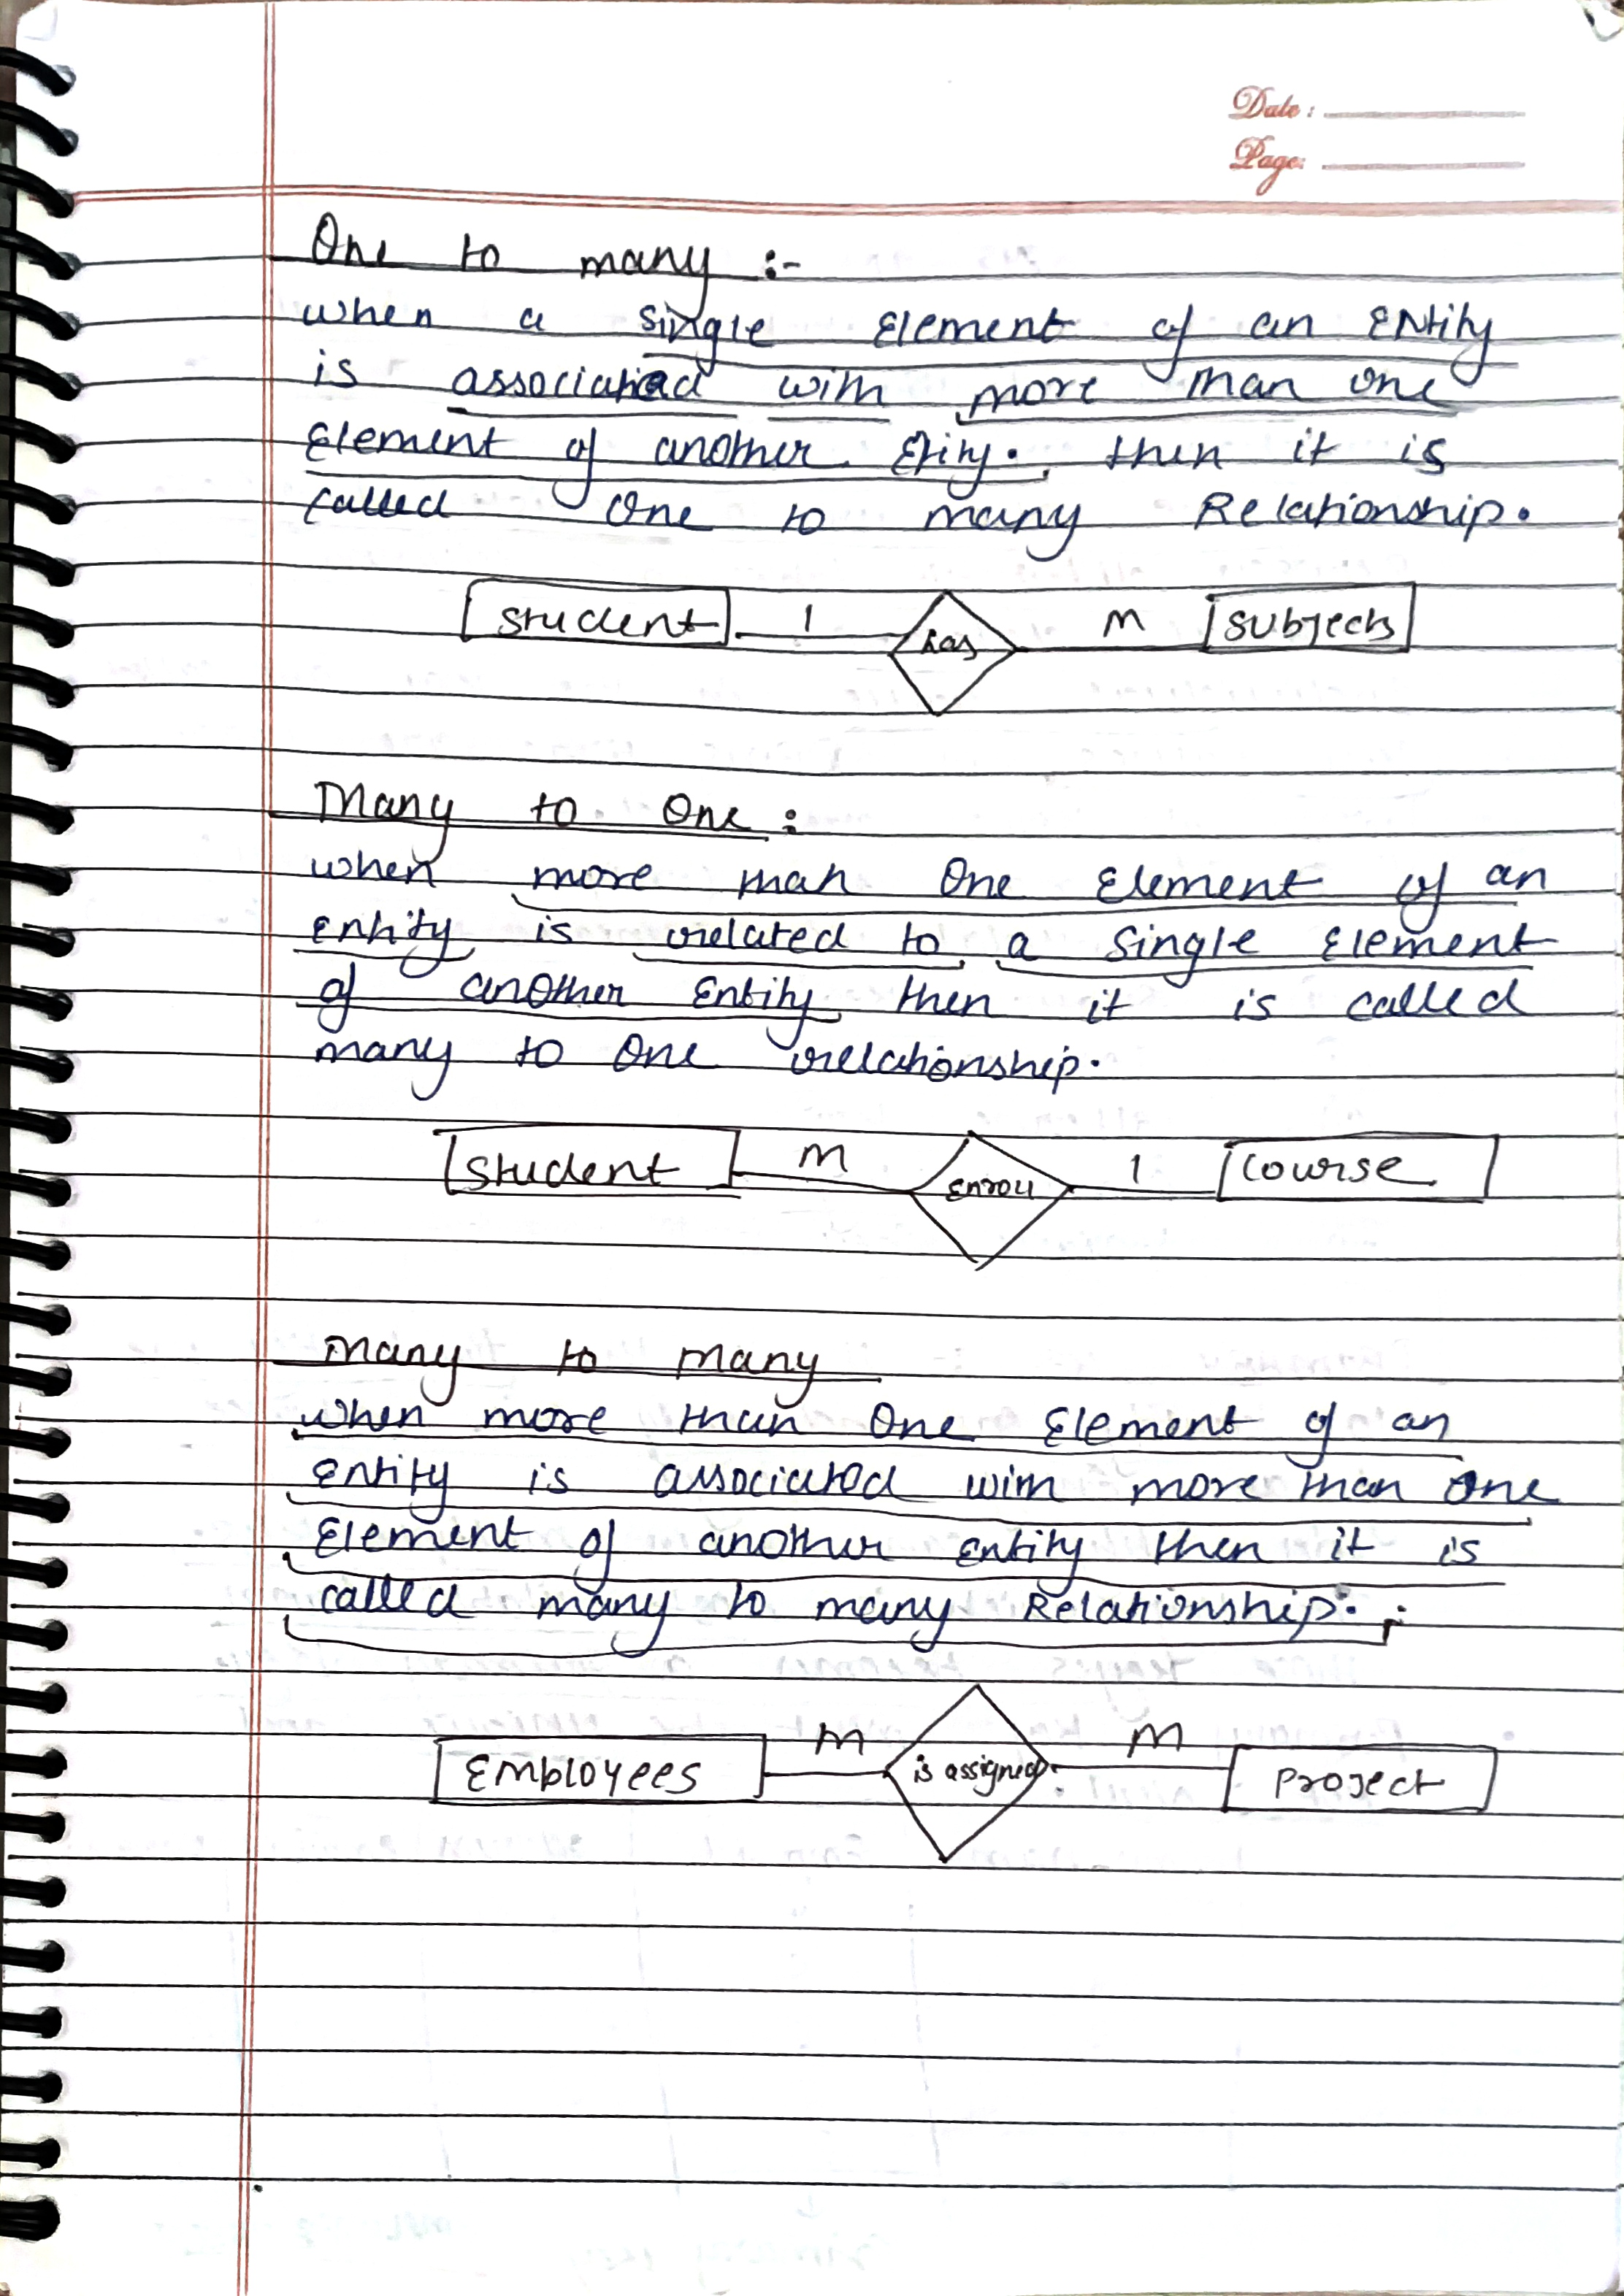 Date :
Page:
One to many :-
when a single Element of an ENtity
is associated with more than one
Element of another Etity. then it is
called One to many Relationship.
student 1 has M subjects
Many to One :
when more than One Element of an
entity is related to a single Element
of another Entity then it is called
many to One relationship.
student M Enroll 1 course
Many to many
when more than One Element of an
Entity is associated with more than one
Element of another entity then it is
called many to many Relationship.
Employees M is assigned M Project